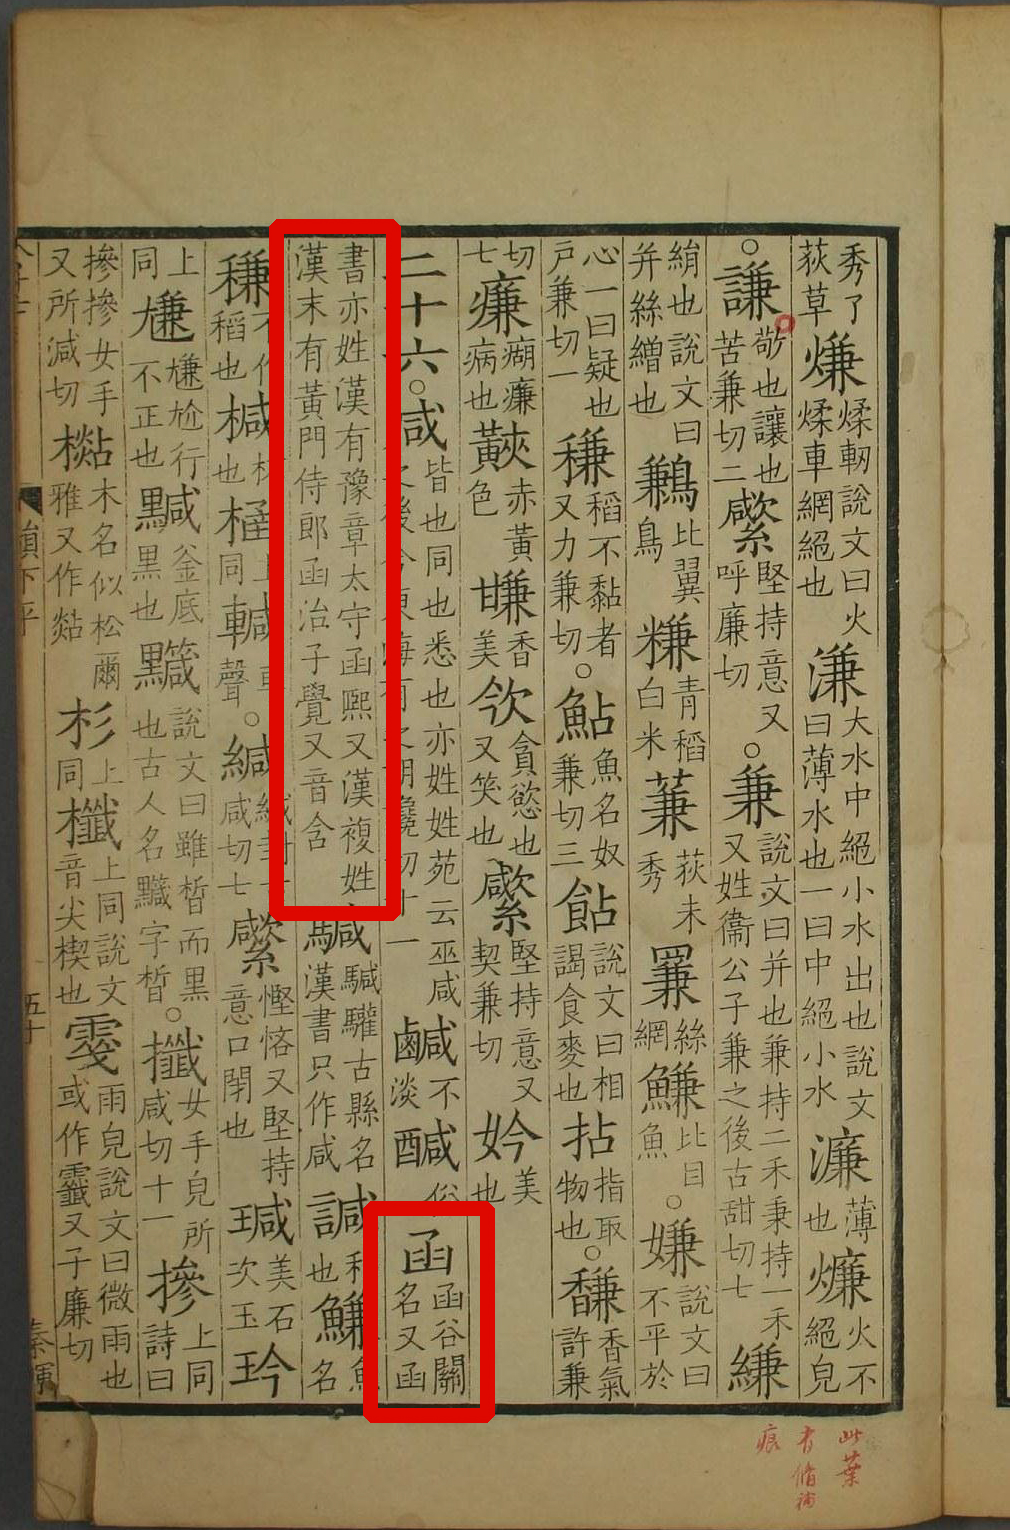 秀了荻草熑煣輞說文曰火煣車網絕也溓大水中絕小水出也說文曰薄水也一曰中絕小水濂薄也燫火不絕皃
○謙敬也讓也苦兼切二堅持意又呼廉切○兼說文曰并也兼持二禾秉持一禾又姓衞公子兼之後古甜切七縑
絹也說文曰并絲繒也鶼比翼鳥𥻧青稻白米蒹荻未秀𦋰絲網鰜比目魚○嫌說文曰不平於
心一曰疑也戶兼切一稴稻不黏者又力兼切○鮎魚名奴兼切三䬯說文曰相謁食麥也拈指取物也○馦香氣許兼
切七病也赤黃色香美欦貪慾也又笑也堅持意又契兼切妗美也
二十六○咸皆也同也悉也亦姓姓苑云巫咸之後今東海有之胡讒切十一鹹不淡醎俗函函谷關名又函
書亦姓漢有豫章太守函熙又漢複姓漢末有黃門侍郎函治子覺又音含驩古縣名漢書只作咸諴和也鰜魚名
稴不作稻也椷杯也上同車聲○緘緘封古咸切七慳悋又堅持意口閉也瑊美石次玉玪
上同尲尲尬行不正也黬釜底黑也說文曰雖晳而黑也古人名黬字晳○攕女手皃所咸切十一摻上同詩曰
摻摻女手又所減切木名似松爾雅又作煔杉上同櫼上同說文音尖楔也雨皃說文曰微雨也或作又子廉切
下平
五十
秦暉
此葉有脩補痕